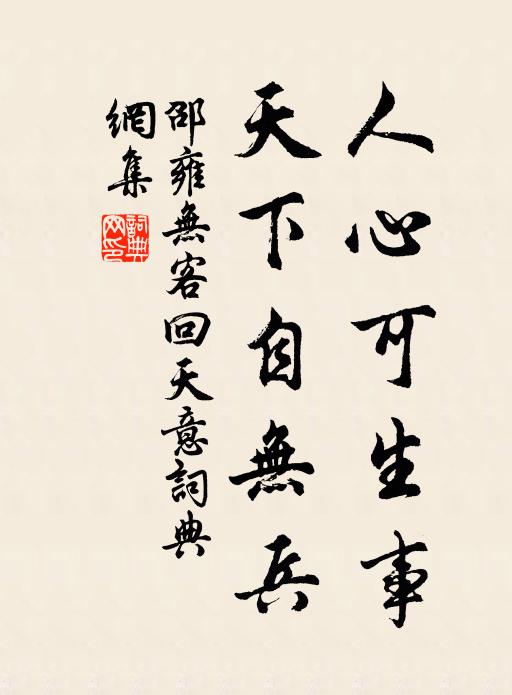 人心可生事
天下自無兵
邵雍無客回天意詞典
網集
詞典
網印